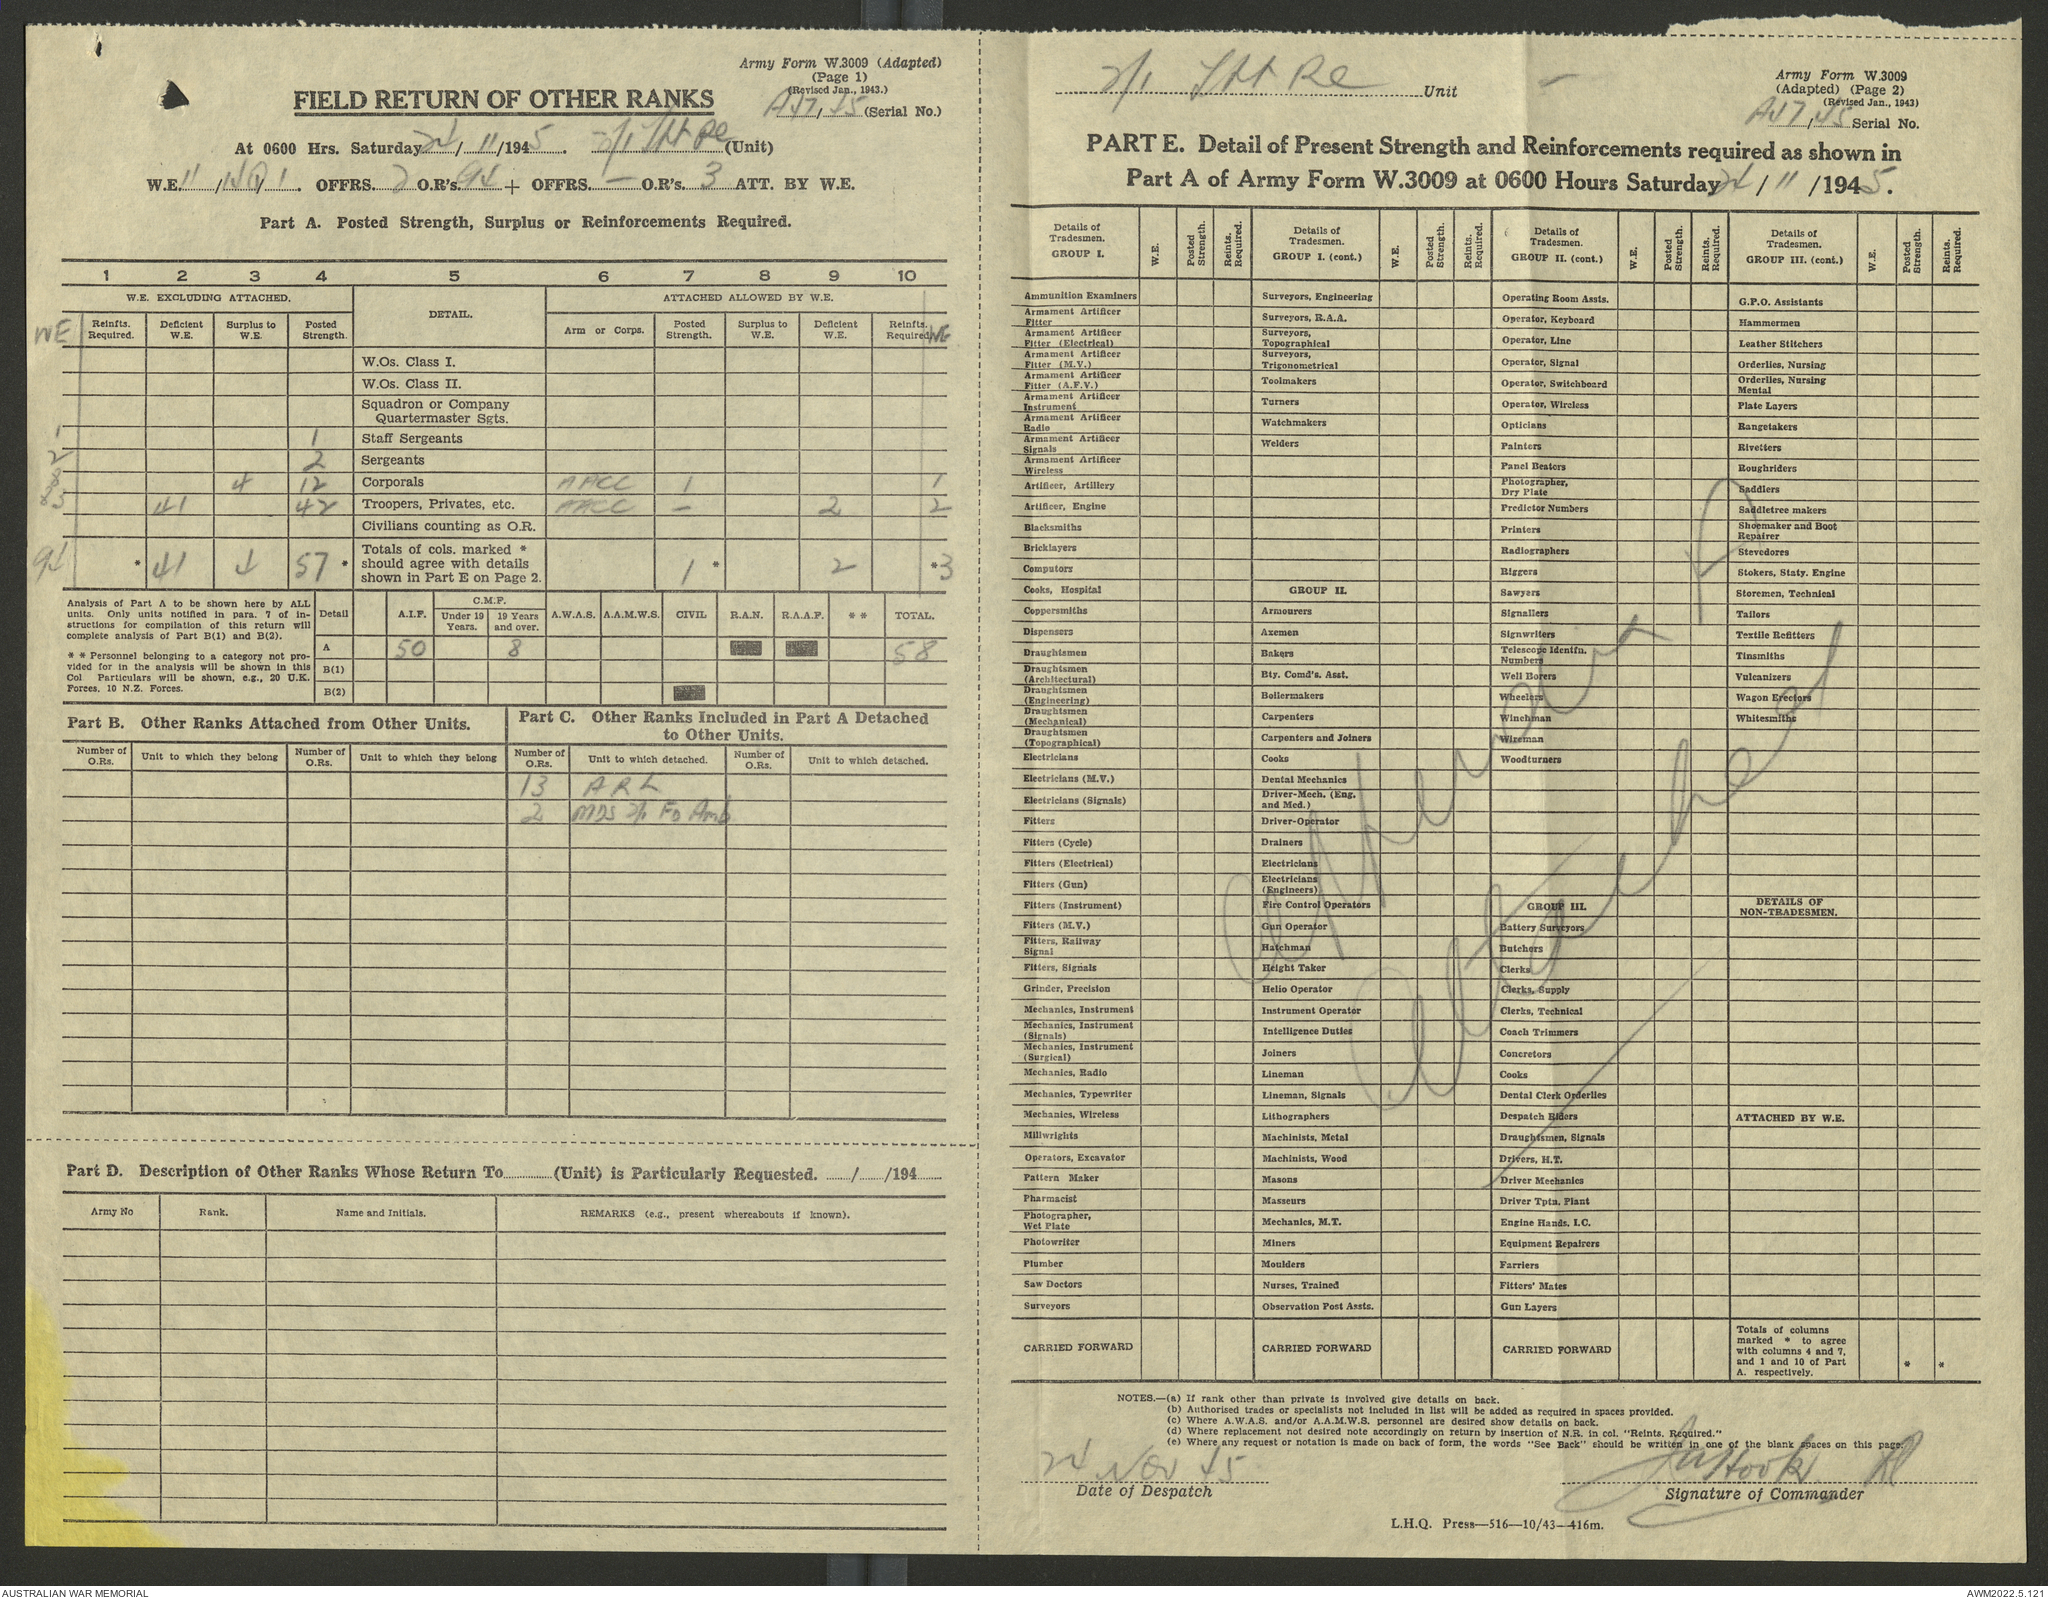 Army Form W.3009 (Adapted)
(Page 1)
(Revised Jan., 1943.)
FIELD RETURN OF OTHER RANKS
A47/45 (Serial No.)
At 0600 Hrs. Saturday 24/11/1945. 2/1 (Unit)
W.E. 11/ / 1. OFFRS. 2 O.R's. 94 + OFFRS. — O.R's. 3 ATT. BY W.E.
Part A. Posted Strength, Surplus or Reinforcements Required.
1 2 3 4 5 6 7 8 9 10
W.E. EXCLUDING ATTACHED. DETAIL. ATTACHED ALLOWED BY W.E.
WE Reinfts. Required. Deficient W.E. Surplus to W.E. Posted Strength. Arm or Corps. Posted Strength. Surplus to W.E. Deficient W.E. Reinfts. Required. WE
W.Os. Class I.
W.Os. Class II.
Squadron or Company
Quartermaster Sgts.
1 1 Staff Sergeants
2 2 Sergeants
8 4 12 Corporals AACC 1 1
83 41 42 Troopers, Privates, etc. AACC – 2 2
Civilians counting as O.R.
94 * 41 4 57 * Totals of cols. marked * should agree with details shown in Part E on Page 2. 1 * 2 * 3
Analysis of Part A to be shown here by ALL
units. Only units notified in para. 7 of in-
structions for compilation of this return will
complete analysis of Part B(1) and B(2).
* * Personnel belonging to a category not pro-
vided for in the analysis will be shown in this
Col Particulars will be shown, e.g., 20 U.K.
Forces, 10 N.Z. Forces.
Detail A.I.F. C.M.F. Under 19 Years. 19 Years and over. A.W.A.S. A.A.M.W.S. CIVIL R.A.N. R.A.A.F. * * TOTAL.
A 50 8 58
B(1)
B(2)
Part B. Other Ranks Attached from Other Units.
Part C. Other Ranks Included in Part A Detached
to Other Units.
Number of O.Rs. Unit to which they belong Number of O.Rs. Unit to which they belong Number of O.Rs. Unit to which detached. Number of O.Rs. Unit to which detached.
13 ARL
2 MDS 2/1 Fd Amb
Part D. Description of Other Ranks Whose Return To (Unit) is Particularly Requested. / /194
Army No Rank. Name and Initials. REMARKS (e.g., present whereabouts if known).
2/1 Unit
Army Form W.3009
(Adapted) (Page 2)
(Revised Jan., 1943)
A47/45 Serial No.
PART E. Detail of Present Strength and Reinforcements required as shown in
Part A of Army Form W.3009 at 0600 Hours Saturday 24/11/1945.
Details of Tradesmen. GROUP I. W.E. Posted Strength. Reints. Required. Details of Tradesmen. GROUP I. (cont.) W.E. Posted Strength. Reints. Required. Details of Tradesmen. GROUP II. (cont.) W.E. Posted Strength. Reints. Required. Details of Tradesmen. GROUP III. (cont.) W.E. Posted Strength. Reints. Required.
Ammunition Examiners
Armament Artificer Fitter
Armament Artificer Fitter (Electrical)
Armament Artificer Fitter (M.V.)
Armament Artificer Fitter (A.F.V.)
Armament Artificer Instrument
Armament Artificer Radio
Armament Artificer Signals
Armament Artificer Wireless
Artificer, Artillery
Artificer, Engine
Blacksmiths
Bricklayers
Computors
Cooks, Hospital
Coppersmiths
Dispensers
Draughtsmen
Draughtsmen (Architectural)
Draughtsmen (Engineering)
Draughtsmen (Mechanical)
Draughtsmen (Topographical)
Electricians
Electricians (M.V.)
Electricians (Signals)
Fitters
Fitters (Cycle)
Fitters (Electrical)
Fitters (Gun)
Fitters (Instrument)
Fitters (M.V.)
Fitters, Railway Signal
Fitters, Signals
Grinder, Precision
Mechanics, Instrument
Mechanics, Instrument (Signals)
Mechanics, Instrument (Surgical)
Mechanics, Radio
Mechanics, Typewriter
Mechanics, Wireless
Millwrights
Operators, Excavator
Pattern Maker
Pharmacist
Photographer, Wet Plate
Photowriter
Plumber
Saw Doctors
Surveyors
CARRIED FORWARD
Surveyors, Engineering
Surveyors, R.A.A.
Surveyors, Topographical
Surveyors, Trigonometrical
Toolmakers
Turners
Watchmakers
Welders
GROUP II.
Armourers
Axemen
Bakers
Bty. Comd's. Asst.
Boilermakers
Carpenters
Carpenters and Joiners
Cooks
Dental Mechanics
Driver-Mech. (Eng. and Med.)
Driver-Operator
Drainers
Electricians
Electricians (Engineers)
Fire Control Operators
Gun Operator
Hatchman
Height Taker
Helio Operator
Instrument Operator
Intelligence Duties
Joiners
Lineman
Lineman, Signals
Lithographers
Machinists, Metal
Machinists, Wood
Masons
Masseurs
Mechanics, M.T.
Miners
Moulders
Nurses, Trained
Observation Post Assts.
CARRIED FORWARD
Operating Room Assts.
Operator, Keyboard
Operator, Line
Operator, Signal
Operator, Switchboard
Operator, Wireless
Opticians
Painters
Panel Beaters
Photographer, Dry Plate
Predictor Numbers
Printers
Radiographers
Riggers
Sawyers
Signallers
Signwriters
Telescope Identfn. Numbers
Well Borers
Wheelers
Winchman
Wireman
Woodturners
GROUP III.
Battery Surveyors
Butchers
Clerks
Clerks, Supply
Clerks, Technical
Coach Trimmers
Concretors
Cooks
Dental Clerk Orderlies
Despatch Riders
Draughtsmen, Signals
Drivers, H.T.
Driver Mechanics
Driver Tptn. Plant
Engine Hands, I.C.
Equipment Repairers
Farriers
Fitters' Mates
Gun Layers
CARRIED FORWARD
G.P.O. Assistants
Hammermen
Leather Stitchers
Orderlies, Nursing
Orderlies, Nursing Mental
Plate Layers
Rangetakers
Rivetters
Roughriders
Saddlers
Saddletree makers
Shoemaker and Boot Repairer
Stevedores
Stokers, Staty. Engine
Storemen, Technical
Tailors
Textile Refitters
Tinsmiths
Vulcanizers
Wagon Erectors
Whitesmiths
DETAILS OF NON-TRADESMEN.
ATTACHED BY W.E.
Totals of columns marked * to agree with columns 4 and 7, and 1 and 10 of Part A. respectively. * *
attached
NOTES.—(a) If rank other than private is involved give details on back.
(b) Authorised trades or specialists not included in list will be added as required in spaces provided.
(c) Where A.W.A.S. and/or A.A.M.W.S. personnel are desired show details on back.
(d) Where replacement not desired note accordingly on return by insertion of N.R. in col. "Reints. Required."
(e) Where any request or notation is made on back of form, the words "See Back" should be written in one of the blank spaces on this page.
24 Nov 45
Date of Despatch
Signature of Commander
L.H.Q. Press—516—10/43—416m.
AUSTRALIAN WAR MEMORIAL
AWM2022.5.121